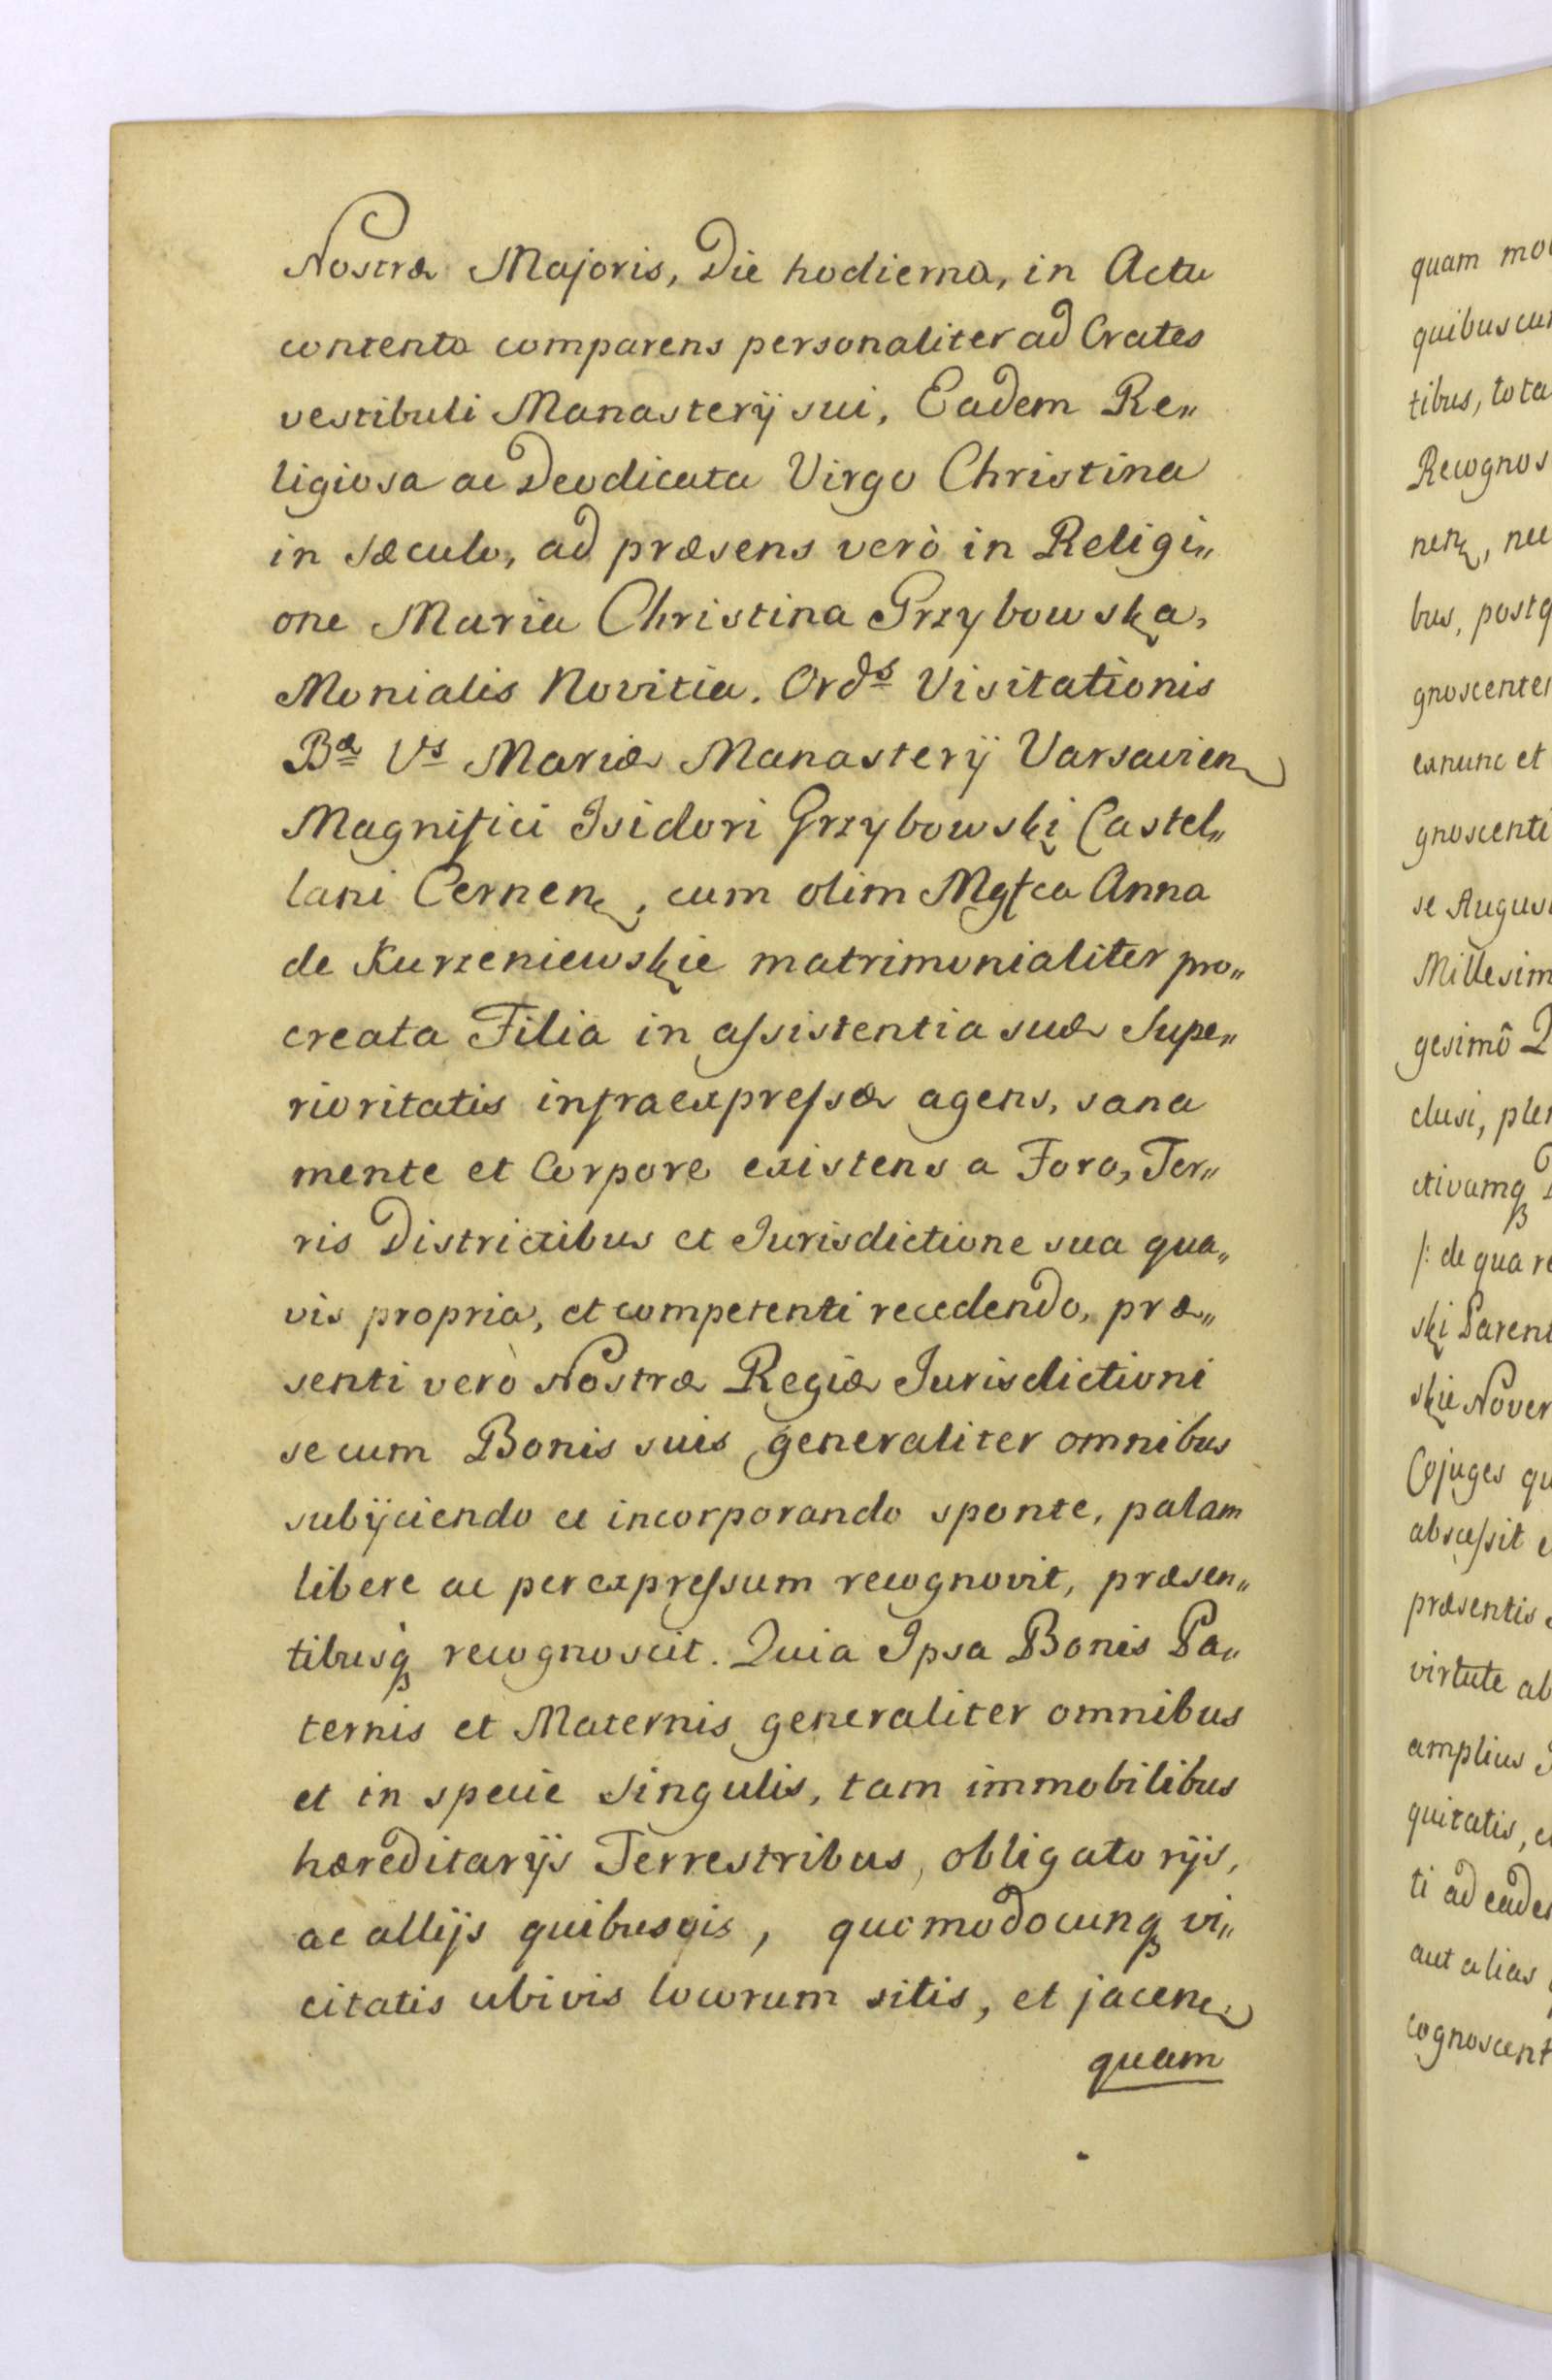 Nostræ Majoris, Die hodierna, in Actu
contento comparens personaliter ad Crates
vestibuli Manasterij sui, Eadem Re„
ligiosa ac Deodicata Virgo Christina
in Sæculo, ad præsens verò in Religi„
one Maria Christina Grzybowska,
Monialis Novitia. Ords Visitationis
Bæ Vs Mariæ Manasterij Varsavien
Magnifici Isidori Grzybowski Castel„
lani Cernen, cum olim Mgfca Anna
de Kurzeniewskie matrimonialiter pro„
creata Filia in assistentia suæ Supe„
rioritatis infraexpressæ agens, sana
mente et Corpore existens a Foro, Ter„
ris Districtibus et Jurisdictione sua qua„
vis propria, et competenti recedendo, præ„
senti verò Nostræ Regiæ Jurisdictioni
se cum Bonis suis generaliter omnibus
subijciendo et incorporando sponte, palam
libere ac per expressum recognovit, præsen„
tibusq recognoscit. Quia Ipsa Bonis Pa„
ternis et Maternis generaliter omnibus
et in specie Singulis, tam immobilibus
hæreditarijs Terrestribus, obligatorijs,
ac allijs quibusvis, quomodocunq vi„
citatis ubivis locorum sitis, et jacen
quam
quam
tibus, tota
Recognos
nen, nec
bus, postq
gnoscentes
exnunc et
gnoscenti
se Augus
Millesim
gesimô
clusi, plen
ctivamq
/: de qua re
ski Parent
skie Nover
Cojuges qu
abscessit
præsentis
virtute ab
amplius
quitatis,
ti ad eade
aut alias
cognoscent